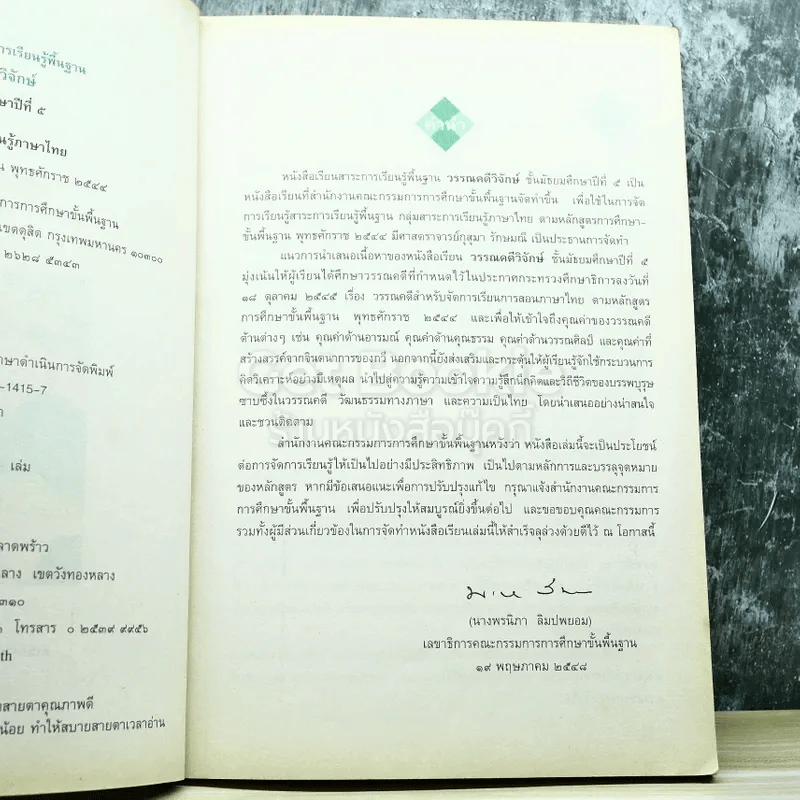 การเรียนรู้พื้นฐาน
วิจักษ์
ษาปีที่ ๕
นรู้ภาษาไทย
น พุทธศักราช ๒๕๔๔
การการศึกษาขั้นพื้นฐาน
เขตดุสิต กรุงเทพมหานคร ๑๐๓๐๐
๒๖๒๘ ๕๓๔๓
าษาดำเนินการจัดพิมพ์
-1415-7
เล่ม
ลาดพร้าว
ลาง เขตวังทองหลาง
๓๑๐
โทรสาร ๐ ๒๕๓๙ ๙๙๕๖
th
งสายตาคุณภาพดี
น้อย ทำให้สบายสายตาเวลาอ่าน
คำนำ
หนังสือเรียนสาระการเรียนรู้พื้นฐาน วรรณคดีวิจักษ์ ชั้นมัธยมศึกษาปีที่ ๕ เป็น
หนังสือเรียนที่สำนักงานคณะกรรมการการศึกษาขั้นพื้นฐานจัดทำขึ้น เพื่อใช้ในการจัด
การเรียนรู้สาระการเรียนรู้พื้นฐาน กลุ่มสาระการเรียนรู้ภาษาไทย ตามหลักสูตรการศึกษา-
ขั้นพื้นฐาน พุทธศักราช ๒๕๔๔ มีศาสตราจารย์กุสุมา รักษมณี เป็นประธานการจัดทำ
แนวการนำเสนอเนื้อหาของหนังสือเรียน วรรณคดีวิจักษ์ ชั้นมัธยมศึกษาปีที่ ๕
มุ่งเน้นให้ผู้เรียนได้ศึกษาวรรณคดีที่กำหนดไว้ในประกาศกระทรวงศึกษาธิการลงวันที่
๑๘ ตุลาคม ๒๕๔๕ เรื่อง วรรณคดีสำหรับจัดการเรียนการสอนภาษาไทย ตามหลักสูตร
การศึกษาขั้นพื้นฐาน พุทธศักราช ๒๕๔๔ และเพื่อให้เข้าใจถึงคุณค่าของวรรณคดี
ด้านต่างๆ เช่น คุณค่าด้านอารมณ์ คุณค่าด้านคุณธรรม คุณค่าด้านวรรณศิลป์ และคุณค่าที่
สร้างสรรค์จากจินตนาการของกวี นอกจากนี้ยังส่งเสริมและกระตุ้นให้ผู้เรียนรู้จักใช้กระบวนการ
คิดวิเคราะห์อย่างมีเหตุผล นำไปสู่ความรู้ความเข้าใจความรู้สึกนึกคิดและวิถีชีวิตของบรรพบุรุษ
ซาบซึ้งในวรรณคดี วัฒนธรรมทางภาษา และความเป็นไทย โดยนำเสนออย่างน่าสนใจ
และชวนติดตาม
ร้านหนังสือบุ๊คกี้
สำนักงานคณะกรรมการการศึกษาขั้นพื้นฐานหวังว่า หนังสือเล่มนี้จะเป็นประโยชน์
ต่อการจัดการเรียนรู้ให้เป็นไปอย่างมีประสิทธิภาพ เป็นไปตามหลักการและบรรลุจุดหมาย
ของหลักสูตร หากมีข้อเสนอแนะเพื่อการปรับปรุงแก้ไข กรุณาแจ้งสำนักงานคณะกรรมการ
การศึกษาขั้นพื้นฐาน เพื่อปรับปรุงให้สมบูรณ์ยิ่งขึ้นต่อไป และขอขอบคุณคณะกรรมการ
รวมทั้งผู้มีส่วนเกี่ยวข้องในการจัดทำหนังสือเรียนเล่มนี้ให้สำเร็จลุล่วงด้วยดีไว้ ณ โอกาสนี้
(นางพรนิภา ลิมปพยอม)
เลขาธิการคณะกรรมการการศึกษาขั้นพื้นฐาน
๑๙ พฤษภาคม ๒๕๔๘